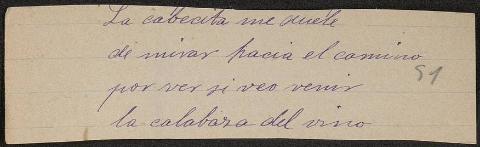 La cabecita me duele
de mirar hacia el camino
91
por ver si veo venir
la calabaza del vino